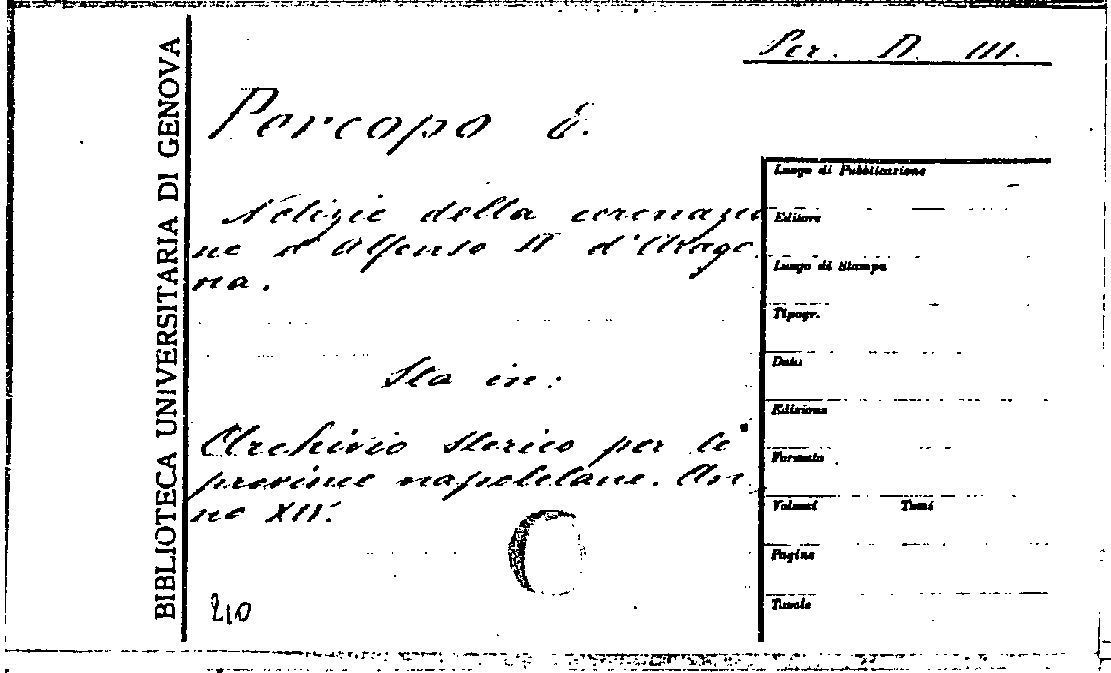 BIBLIOTECA UNIVERSITARIA DI GENOVA
Per. D. III.
Percopo E.
Notizie della coronazio
ne d'Alfonso II d'Arago
na.
Sta in:
Archivio storico per le
province napoletane. An
no XIV.
210
Luogo di Pubblicazione
Editore
Luogo di Stampa
Tipogr.
Data
Edizione
Formato
Volumi Tomi
Pagine
Tavole